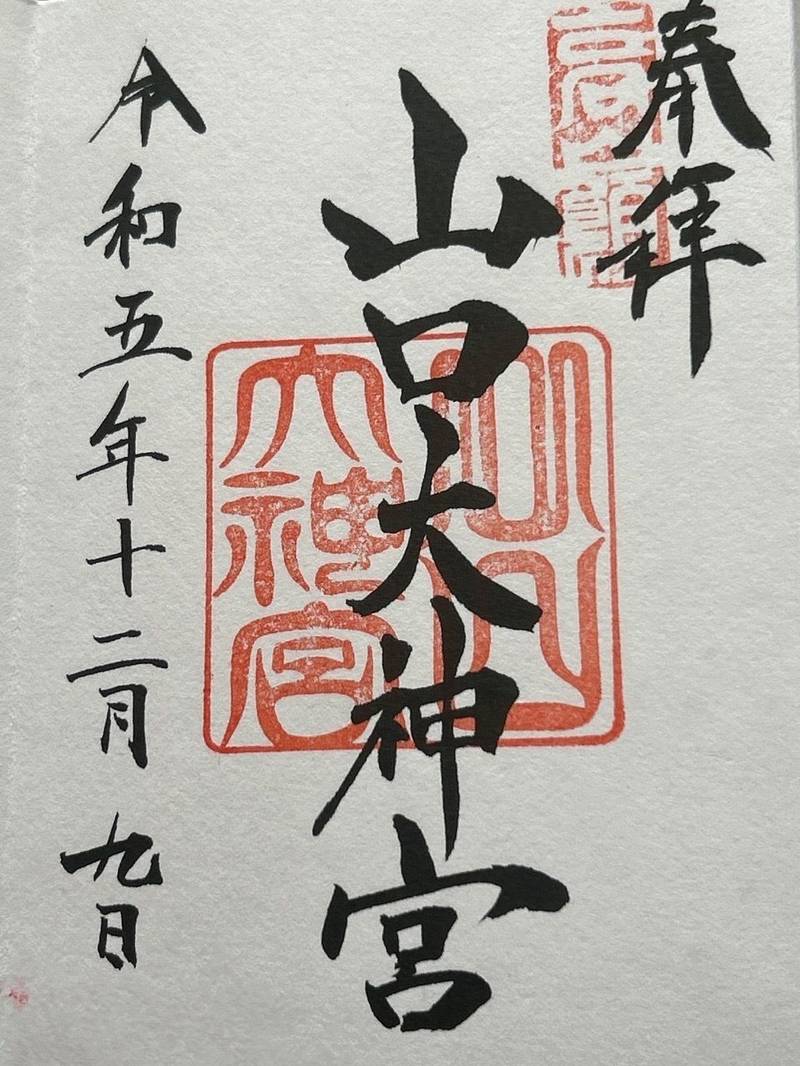 奉拝
山口大神宮
山口
大神宮
令和五年十二月九日